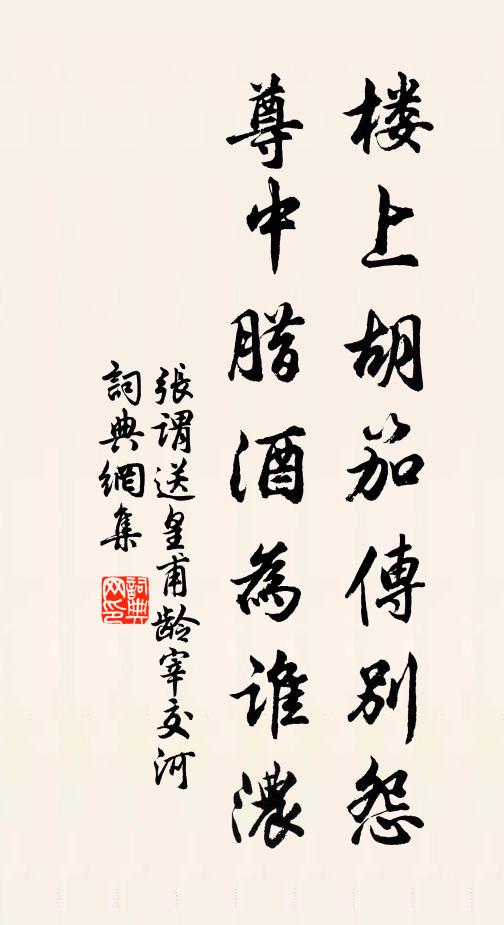 楼上胡笳傳別怨
尊中腊酒為誰濃
張謂送皇甫齡宰交河
詞典網集
詞典网印